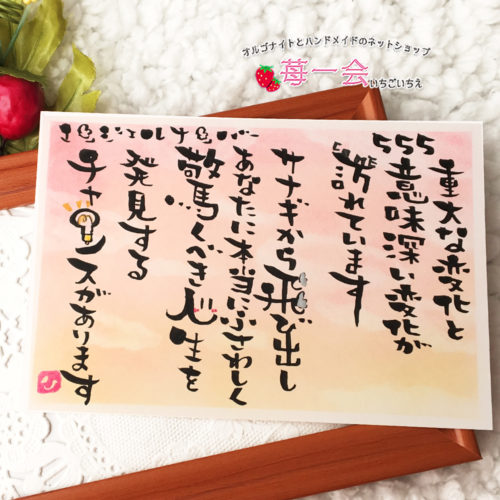 オルゴナイトとハンドメイドのネットショップ
苺一会
いちごいちえ
エンジェルナンバー 555
重大な変化と
意味深い変化が
訪れています
サナギから飛び出し
あなたに本当にふさわしく
驚くべき人生を
発見する
チャンスがあります